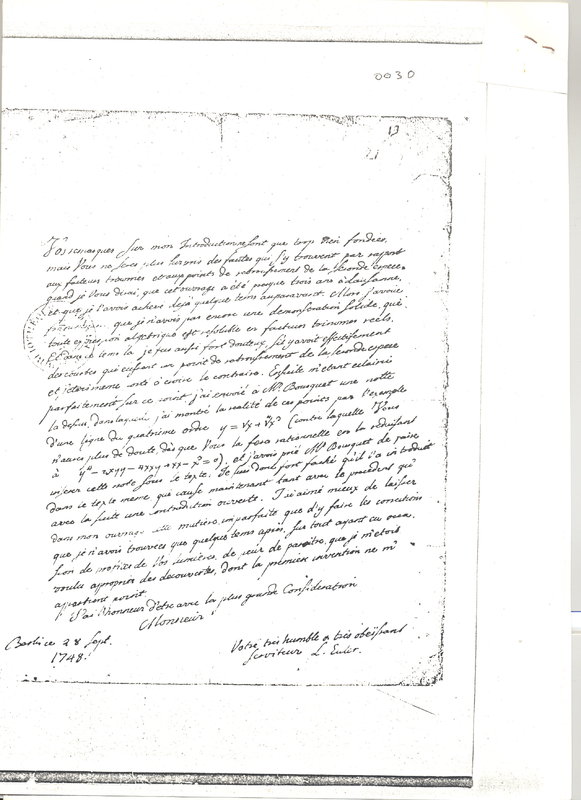 0030
13
21
Vos remarques sur mon Introduction ne sont que trop bien fondées,
mais Vous ne serez plus surpris des fautes qui s'y trouvent par raport
aux facteurs trinomes et aux points de rebroussement de la seconde espece
quand je Vous dirai, que cet ouvrage a été presque trois ans à Lausanne,
et que je l'avois achevé dejà quelque tems auparavant. Alors j'avoue
que je n'avois pas encore une demonstration solide, que
toute expression algebrique est resoluble en facteurs trinomes reels.
Et dans ce tems là je fus aussi fort douteux, s'il y avoit effectivement
des courbes qui eussent un point de rebroussement de la seconde espece
et j'etois meme porté à croire le contraire. Ensuite m'etant eclairci
parfaitement sur ce point, j'ai envoié à Mr. Bousquet une notte
la dessus, dans laquelle j'ai montré la realité de ces points par l'exemple
d'une ligne du quatrieme ordre y = √x + ∜x³ (contre laquelle Vous
n'aurez plus de doute, dès que Vous la ferez rationnelle en la reduisant
à y⁴ − 2xyy − 4xxy + xx − x³ = 0), et j'avois prié Mr. Bousquet de faire
inserer cette note sous le texte. Je suis donc fort faché qu'il l'a introduit
dans le texte meme qui cause maintenant tant avec le precedent qu'
avec la suite une contradiction ouverte. J'ai aimé mieux de laisser
dans mon ouvrage cette matiere imparfaite que d'y faire les corrections
que je n'avois trouvées que quelque tems après, sur tout ayant eu occa-
sion de profiter de Vos lumieres, de peur de paroitre, que je m'etois
voulu approprier des decouvertes, dont la premiere invention ne m'
appartient point.
J'ai l'honneur d'etre avec la plus grande Consideration
Monsieur
Berlin ce 28 Sept.
1748.
Votre très humble et très obeïssant
serviteur L. Euler.